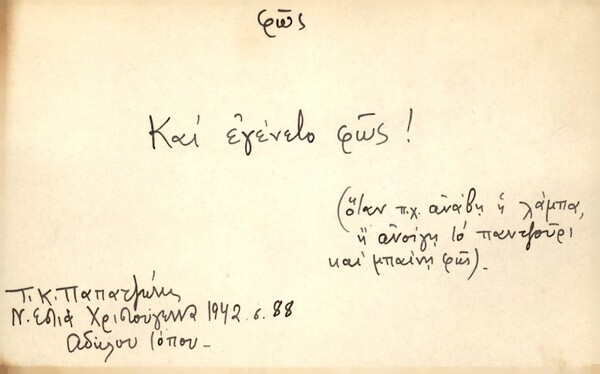 φῶς
Καί ἐγένετο φῶς!
(ὅταν π.χ. ἀνάβῃ ἡ λάμπα,
ἤ ἀνοίγῃ τό παντζοῦρι
καί μπαίνῃ φῶς).
Τ. Κ. Παπατζώνης
Ν. Εστία Χριστούγεννα 1942 σ. 88
Αδήλου τόπου_